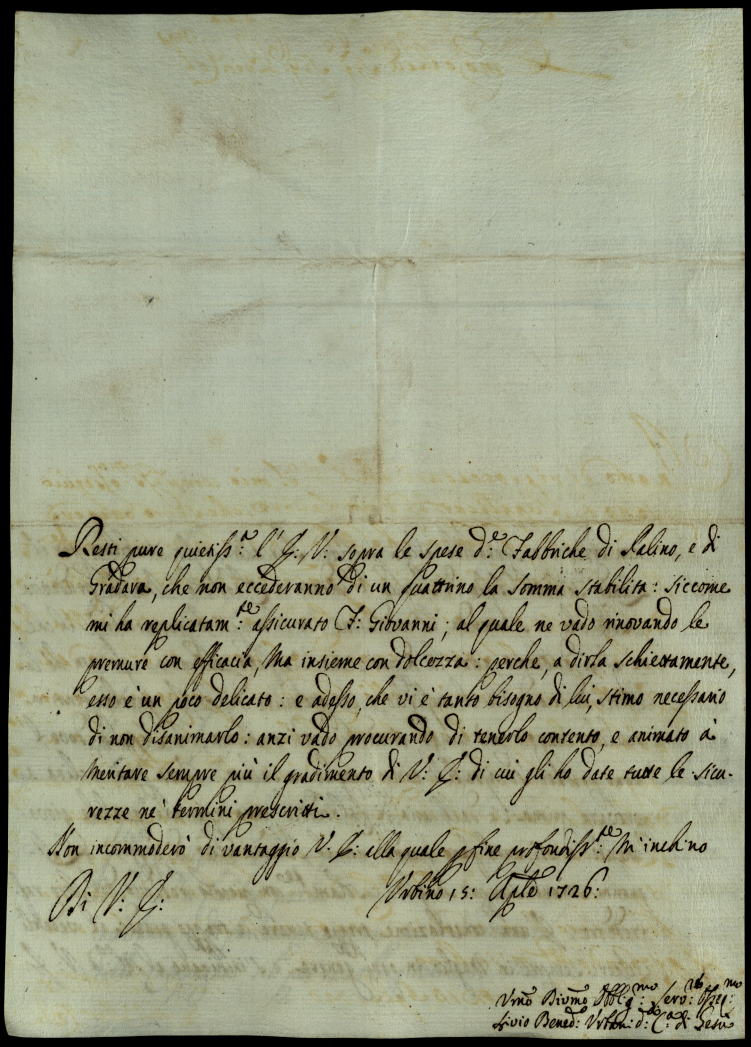 Resti pure quietiss:ª l'E: V: sopra le spese d:e Fabbriche di Ralino, e di
Gradara, che non eccederanno di un quattrino la somma stabilita: siccome
mi ha replicatam:te assicurato F: Giovanni; al quale ne vado rinovando le
premure con efficacia, ma insieme con dolcezza: perche, a dirla schiettamente,
esso è un poco delicato: e adesso, che vi è tanto bisogno di lui, stimo necessario
di non disanimarlo: anzi vado procurando di tenerlo contento, e animato à
meritare sempre più il gradimento di V: E: di cui gli ho date tutte le sicu-
rezze ne' termini prescritti.
Non incommoderò di vantaggio V: E: alla quale p fine profondiss:te M'inchino
Di V: E: Urbino 15: Aple 1726:
Umo Divmo Obblig:mo Serv:re Osseq:mo
Livio Bened: Urbani d:a C:a di Gesù